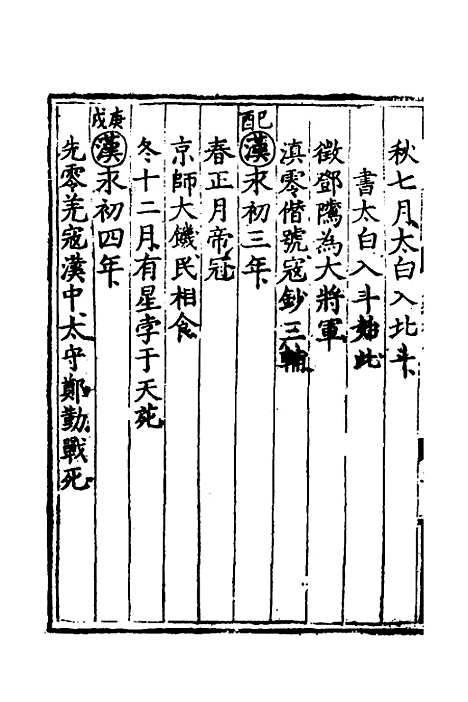 秋七月太白入北斗
書太白入斗始此
徵鄧隲為大將軍
滇零僭號寇鈔三輔
己酉
漢永初三年
春正月帝冠
京師大饑民相食
冬十二月有星孛于天苑
庚戌
漢永初四年
先零羌寇漢中太守鄭勤戰死